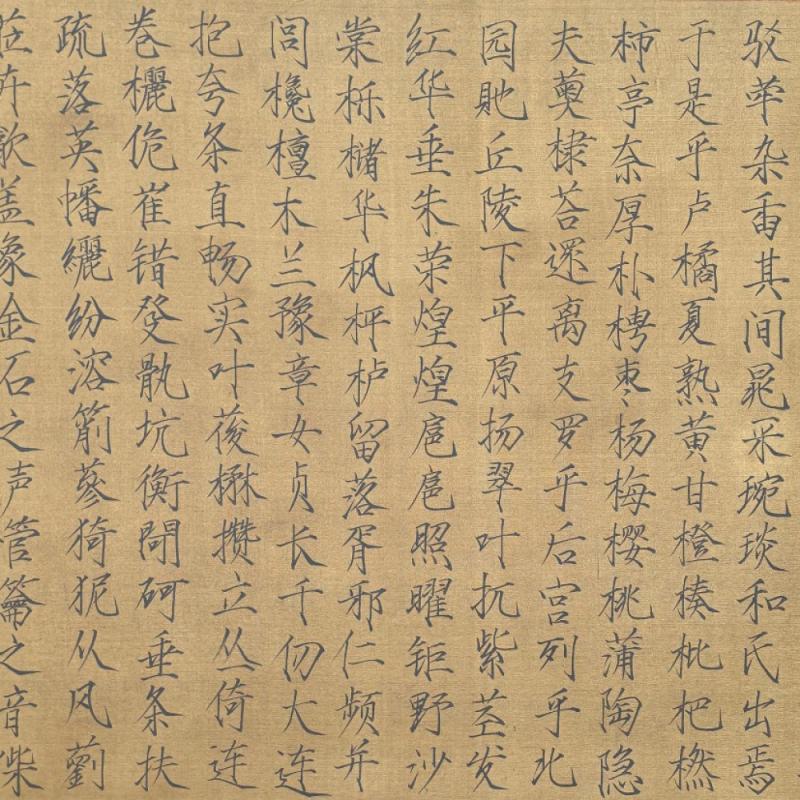 驳荦杂臿其间晁采琬琰和氏出焉
于是乎卢橘夏熟黄甘橙楱枇杷橪
柿亭奈厚朴梬枣杨梅樱桃蒲陶隐
夫薁棣荅遝离支罗乎后宫列乎北
园貤丘陵下平原扬翠叶扤紫茎发
红华垂朱荣煌煌扈扈照曜钜野沙
棠栎槠华枫枰栌留落胥邪仁频并
闾欃檀木兰豫章女贞长千仞大连
抱夸条直畅实叶葰楙攒立丛倚连
卷欐佹崔错癹骫坑衡閜砢垂条扶
疏落英幡纚纷溶箾蔘猗狔从风藰
莅卉歙盖象金石之声管籥之音柴